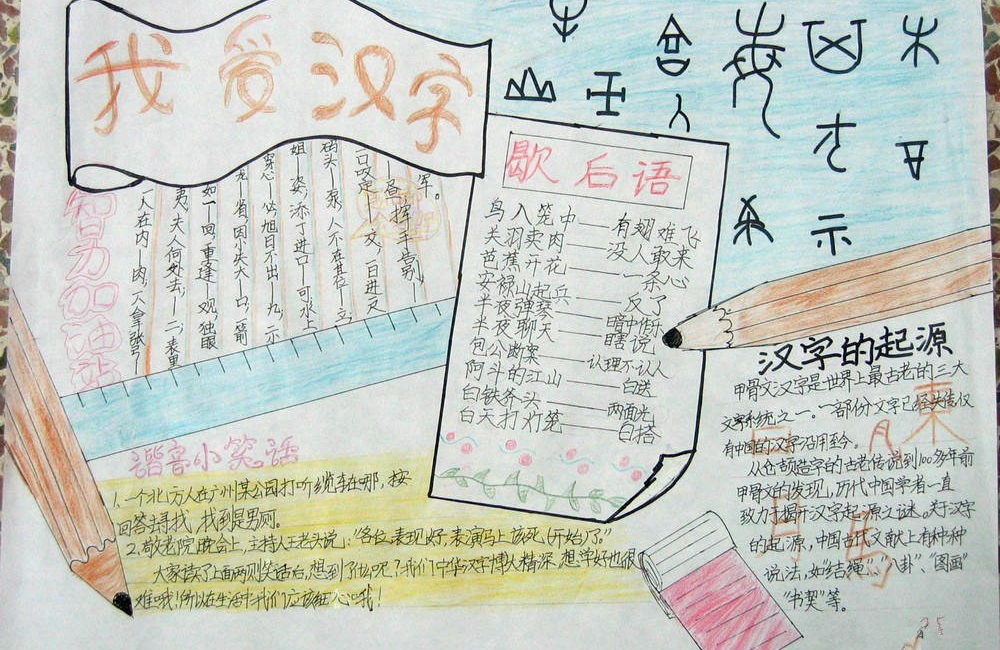 我爱汉字
智力加油站
一人在内——肉,六拿张弓——
夷,夫人何处去——二,表里
如一——回,重逢——观,独眼
龙——省,因小失大——口,箭
穿心——必,旭日不出——九,二小
姐——姿,添丁进口——可,水上
码头——泵,人不在其位——立,
口咬定——交,一百进文
挥手告别——
军。
歇后语
鸟入笼中——有翅难飞
关羽卖肉——没人敢来
芭蕉开花——一条心
安禄山起兵——反了
半夜弹琴——暗中作乐
半夜聊天——瞎说
包公断案——认理不认人
阿斗的江山——白送
白铁斧头——两面光
白天打灯笼——白搭
汉字的起源
甲骨文汉字是世界上最古老的三大
文字系统之一。一部份文字已经失传仅
有中国的汉字沿用至今。
从仓颉造字的古老传说到100多年前
甲骨文的发现,历代中国学者一直
致力于揭开汉字起源之谜。关于汉字
的起源,中国古代文献上有种种
说法,如"结绳"、"八卦"、"图画"
"书契"等。
谐音小笑话
1.一个北方人在广州某公园打听缆车在哪,按
回答去寻找,找到是男厕。
2.敬老院晚会上,主持人王老头说:"各位,表现好,表演马上该死(开始)了。"
大家读了上面两则笑话后,想到了什么呢?我们中华汉字博大精深,想学好也很
难哦!所以在生活中我们应该细心哦!